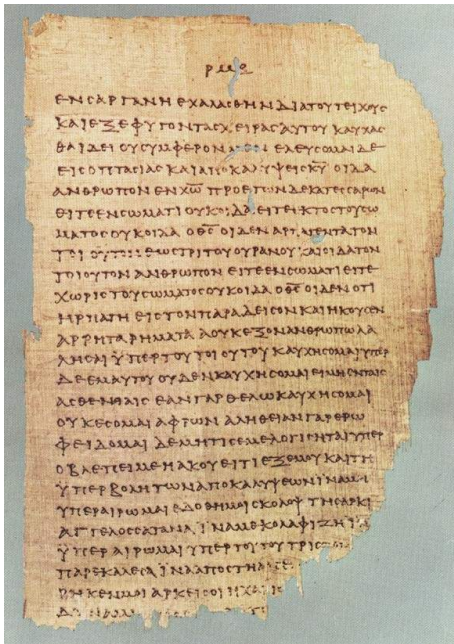 ΕΝϹΑΡΓΑΝΗΕΧΑΛΑϹΘΗΝΔΙΑΤΟΥΤΕΙΧΟΥϹ
ΚΑΙΕΞΕΦΥΓΟΝΤΑϹΧΕΙΡΑϹΑΥΤΟΥ ΚΑΥΧΑϹ
ΘΑΙΔΕΙΟΥϹΥΜΦΕΡΟΝΜΕΝΕΛΕΥϹΟΜΑΙΔΕ
ΕΙϹΟΠΤΑϹΙΑϹΚΑΙΑΠΟΚΑΛΥΨΕΙϹΚ̅Υ̅ ΟΙΔΑ
ΑΝΘΡΩΠΟΝΕΝΧ̅Ω̅ ΠΡΟΕΤΩΝΔΕΚΑΤΕϹϹΑΡΩΝ
ΕΙΤΕΕΝϹΩΜΑΤΙΟΥΚΟΙΔΑΕΙΤΕΕΚΤΟϹΤΟΥϹΩ
ΜΑΤΟϹΟΥΚΟΙΔΑΟΘ̅Ϲ̅ΟΙΔΕΝΑΡΠΑΓΕΝΤΑΤΟΝ
ΤΟΙΟΥΤΟΝΕΩϹΤΡΙΤΟΥΟΥΡΑΝΟΥΚΑΙΟΙΔΑΤΟΝ
ΤΟΙΟΥΤΟΝΑΝΘΡΩΠΟΝΕΙΤΕΕΝϹΩΜΑΤΙΕΙΤΕ
ΧΩΡΙϹΤΟΥϹΩΜΑΤΟϹΟΥΚΟΙΔΑΟΘ̅Ϲ̅ΟΙΔΕΝΟΤΙ
ΗΡΠΑΓΗΕΙϹΤΟΝΠΑΡΑΔΕΙϹΟΝΚΑΙΗΚΟΥϹΕΝ
ΑΡΡΗΤΑΡΗΜΑΤΑΑΟΥΚΕΞΟΝΑΝΘΡΩΠΩΛΑ
ΛΗϹΑΙΫΠΕΡΤΟΥΤΟΙΟΥΤΟΥΚΑΥΧΗϹΟΜΑΙΥΠΕΡ
ΔΕΕΜΑΥΤΟΥΟΥΔΕΝΚΑΥΧΗϹΟΜΑΙΕΙΜΗΕΝΤΑΙϹ
ΑϹΘΕΝΙΑΙϹΕΑΝΓΑΡΘΕΛΩΚΑΥΧΗϹΟΜΑΙ
ΟΥΚΕϹΟΜΑΙΑΦΡΩΝΑΛΗΘΕΙΑΝΓΑΡΕΡΩ
ΦΕΙΔΟΜΑΙΔΕΜΗΤΙϹΕΜΕΛΟΓΙϹΗΤΑΙΥΠΕΡ
ΟΒΛΕΠΕΙΜΕΗΑΚΟΥΕΙΤΙΕΞΕΜΟΥΚΑΙΤΗ
ΫΠΕΡΒΟΛΗΤΩΝΑΠΟΚΑΛΥΨΕΩΝΪΝΑΜΗ
ΥΠΕΡΑΙΡΩΜΑΙΕΔΟΘΗΜΟΙϹΚΟΛΟΨΤΗϹΑΡΚΙ
ΑΓΓΕΛΟϹϹΑΤΑΝΑΪΝΑΜΕΚΟΛΑΦΙΖΗΪ
ΫΠΕΡΑΙΡΩΜΑΙΥΠΕΡΤΟΥΤΟΥΤΡΙϹ
ΠΑΡΕΚΑΛΕϹΑΪΝΑΑΠΟϹΤΗ
ΡΗΚΕΝΜΟΙΑΡΚΕΙϹΟΙΗΧΑΡΙϹ